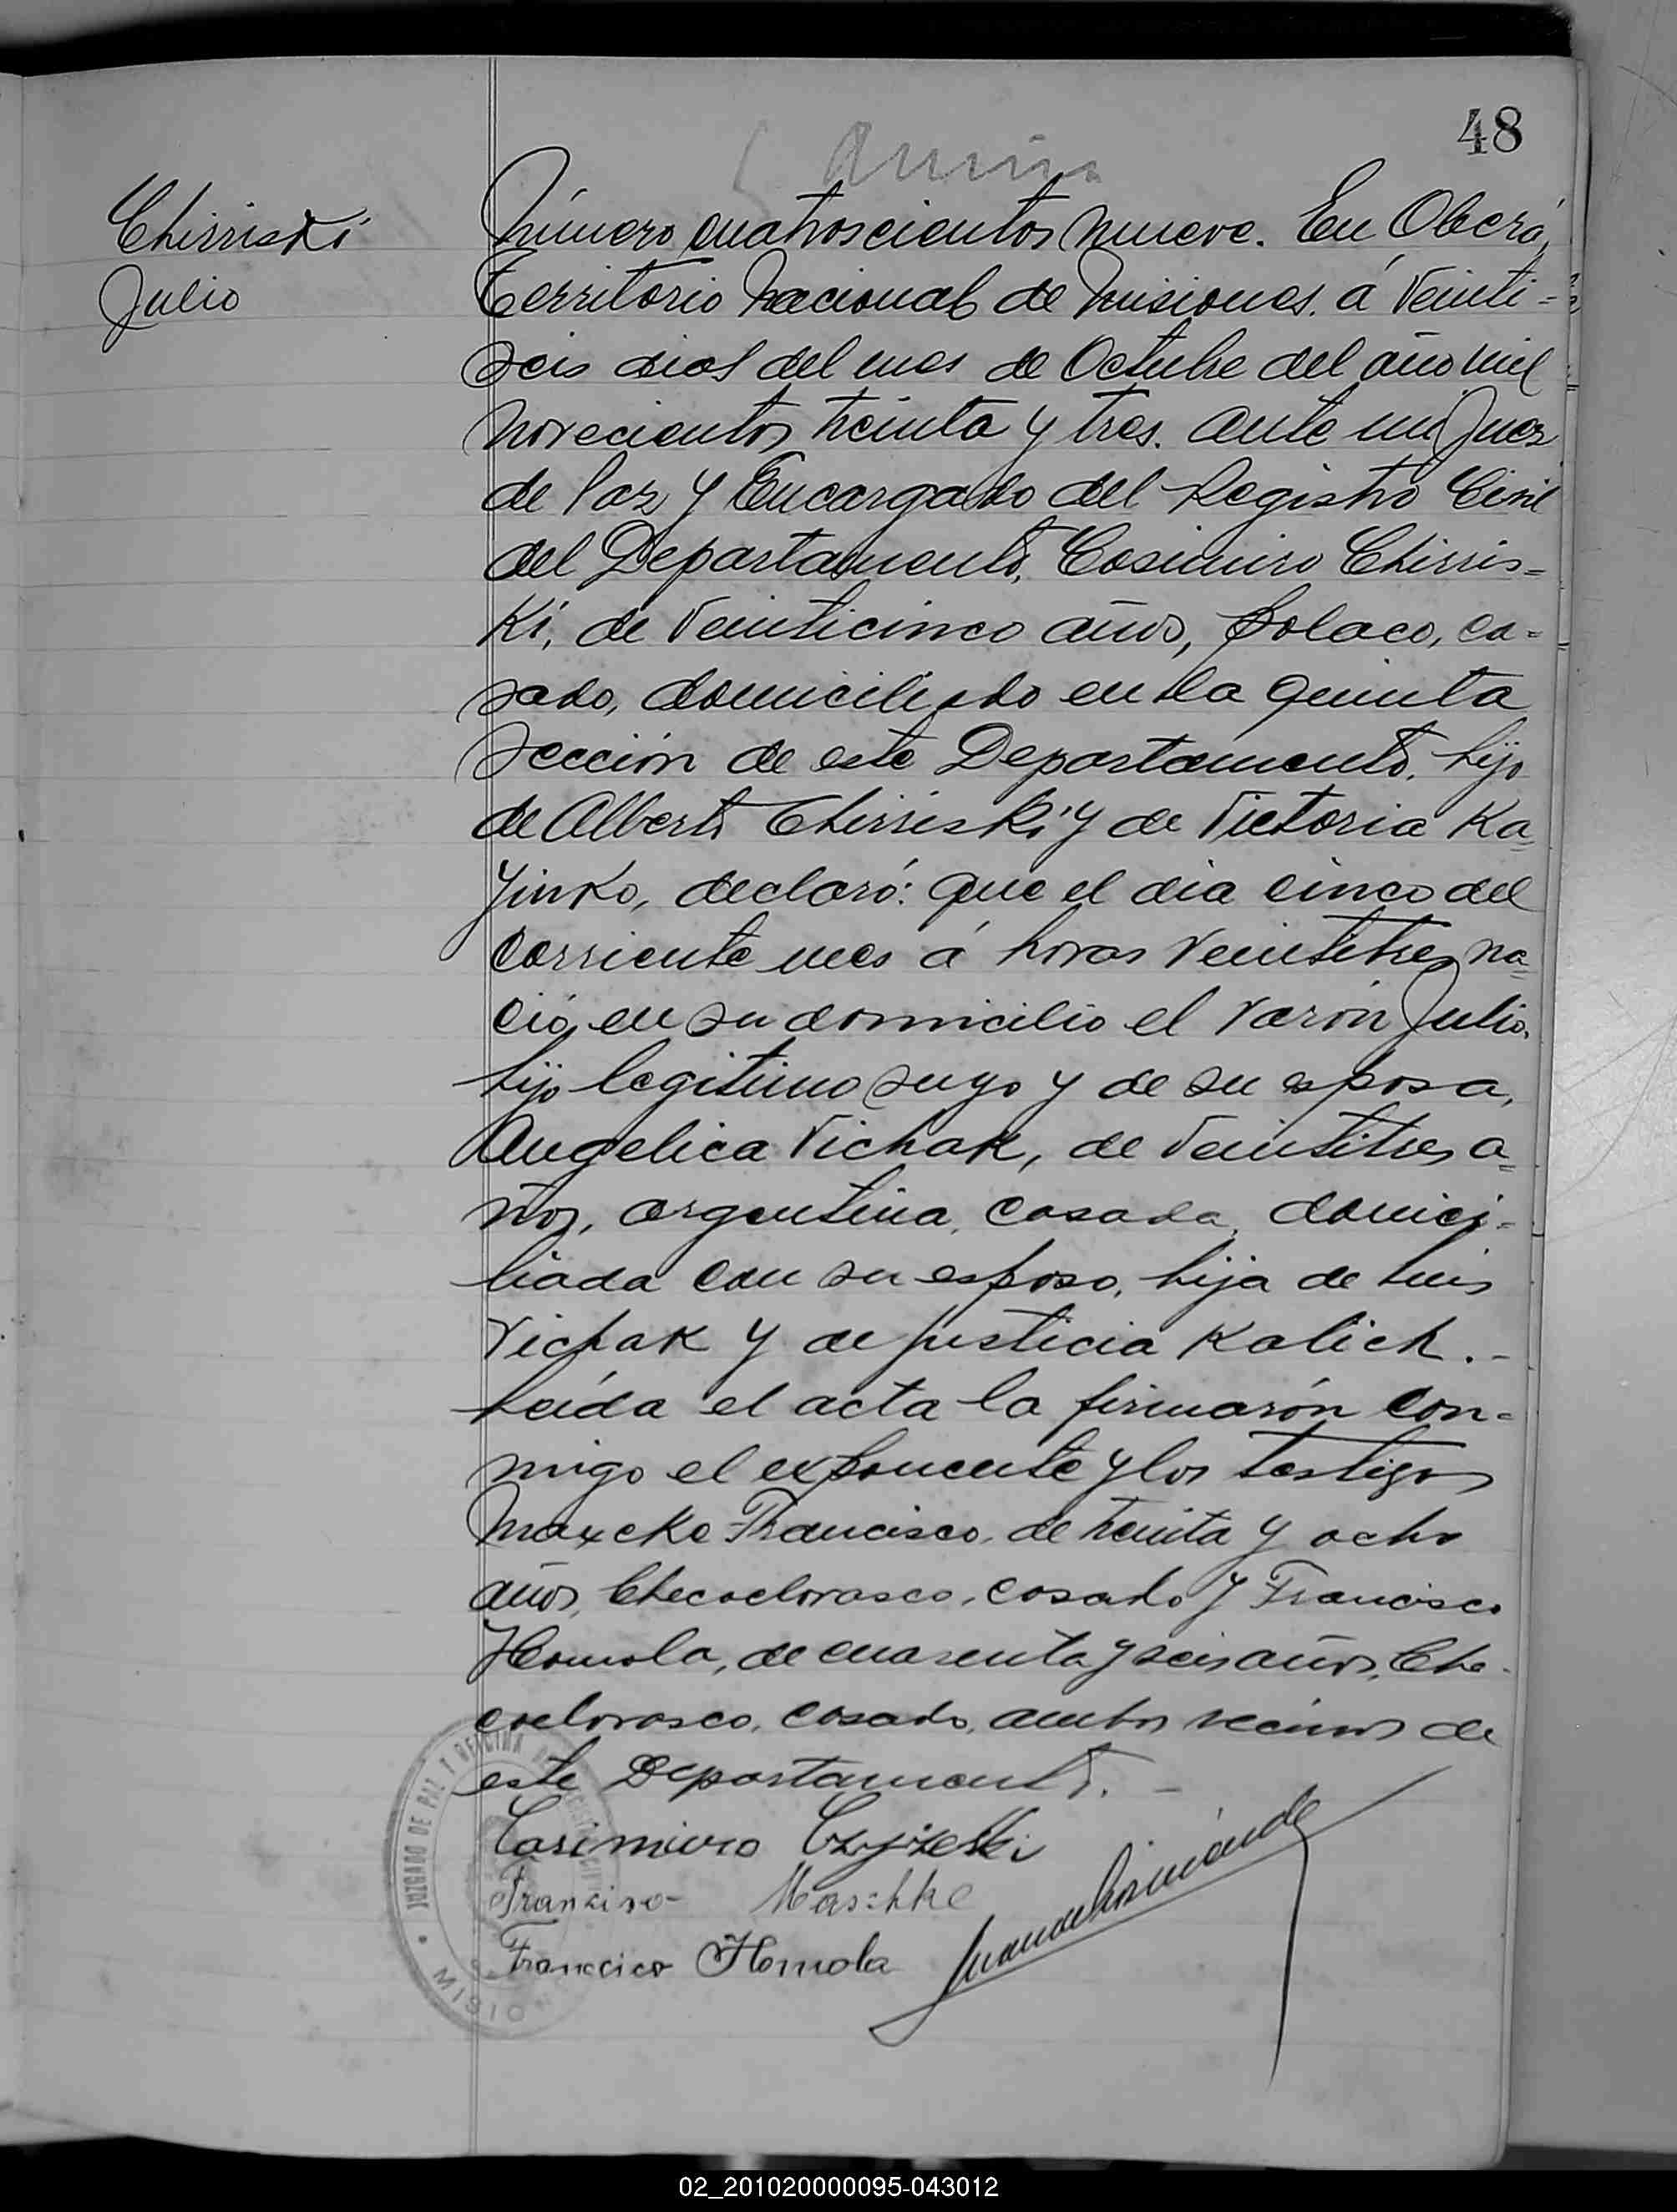 48
Chirriski
Julio
Número cuatroscientos nueve. En Oberá,
Territorio Nacional de Misiones. á veinti=
seis dias del mes de Octubre del año mil
novecientos treinta y tres. ante mi Juez
de Paz y Encargado del Registro Civil
del Departamento, Casimiro Chirris=
Ki, de veinticinco años, polaco, ca=
sado, domiciliado en la quinta
Sección de este Departamento. hijo
de Alberto Chirriski y de Victoria Ka=
yinko, declaró: que el dia cinco del
corriente mes á horas veintitres na=
ció, en su domicilio el varón Julio.
hijo legitimo suyo y de su esposa,
Angelica Vichak, de veintitres a=
ños, argentina, casada, domici=
liada con su esposo, hija de Luis
Vichak y de Justicia Kalich.-
Leída el acta la firmarón con=
migo el exponente y los testigos
Maxcke Francisco, de treinta y ocho
años, Checoeslovasco, casado y Francisco
Homola, de cuarenta y seis años, Che-
coeslovasco, casado, ambos vecinos de
este Departamento. -
Casimiro Czyżeski
Franziso- Maschke
Francisco Homola
JUZGADO DE PAZ Y OFICINA DE
02_201020000095-043012